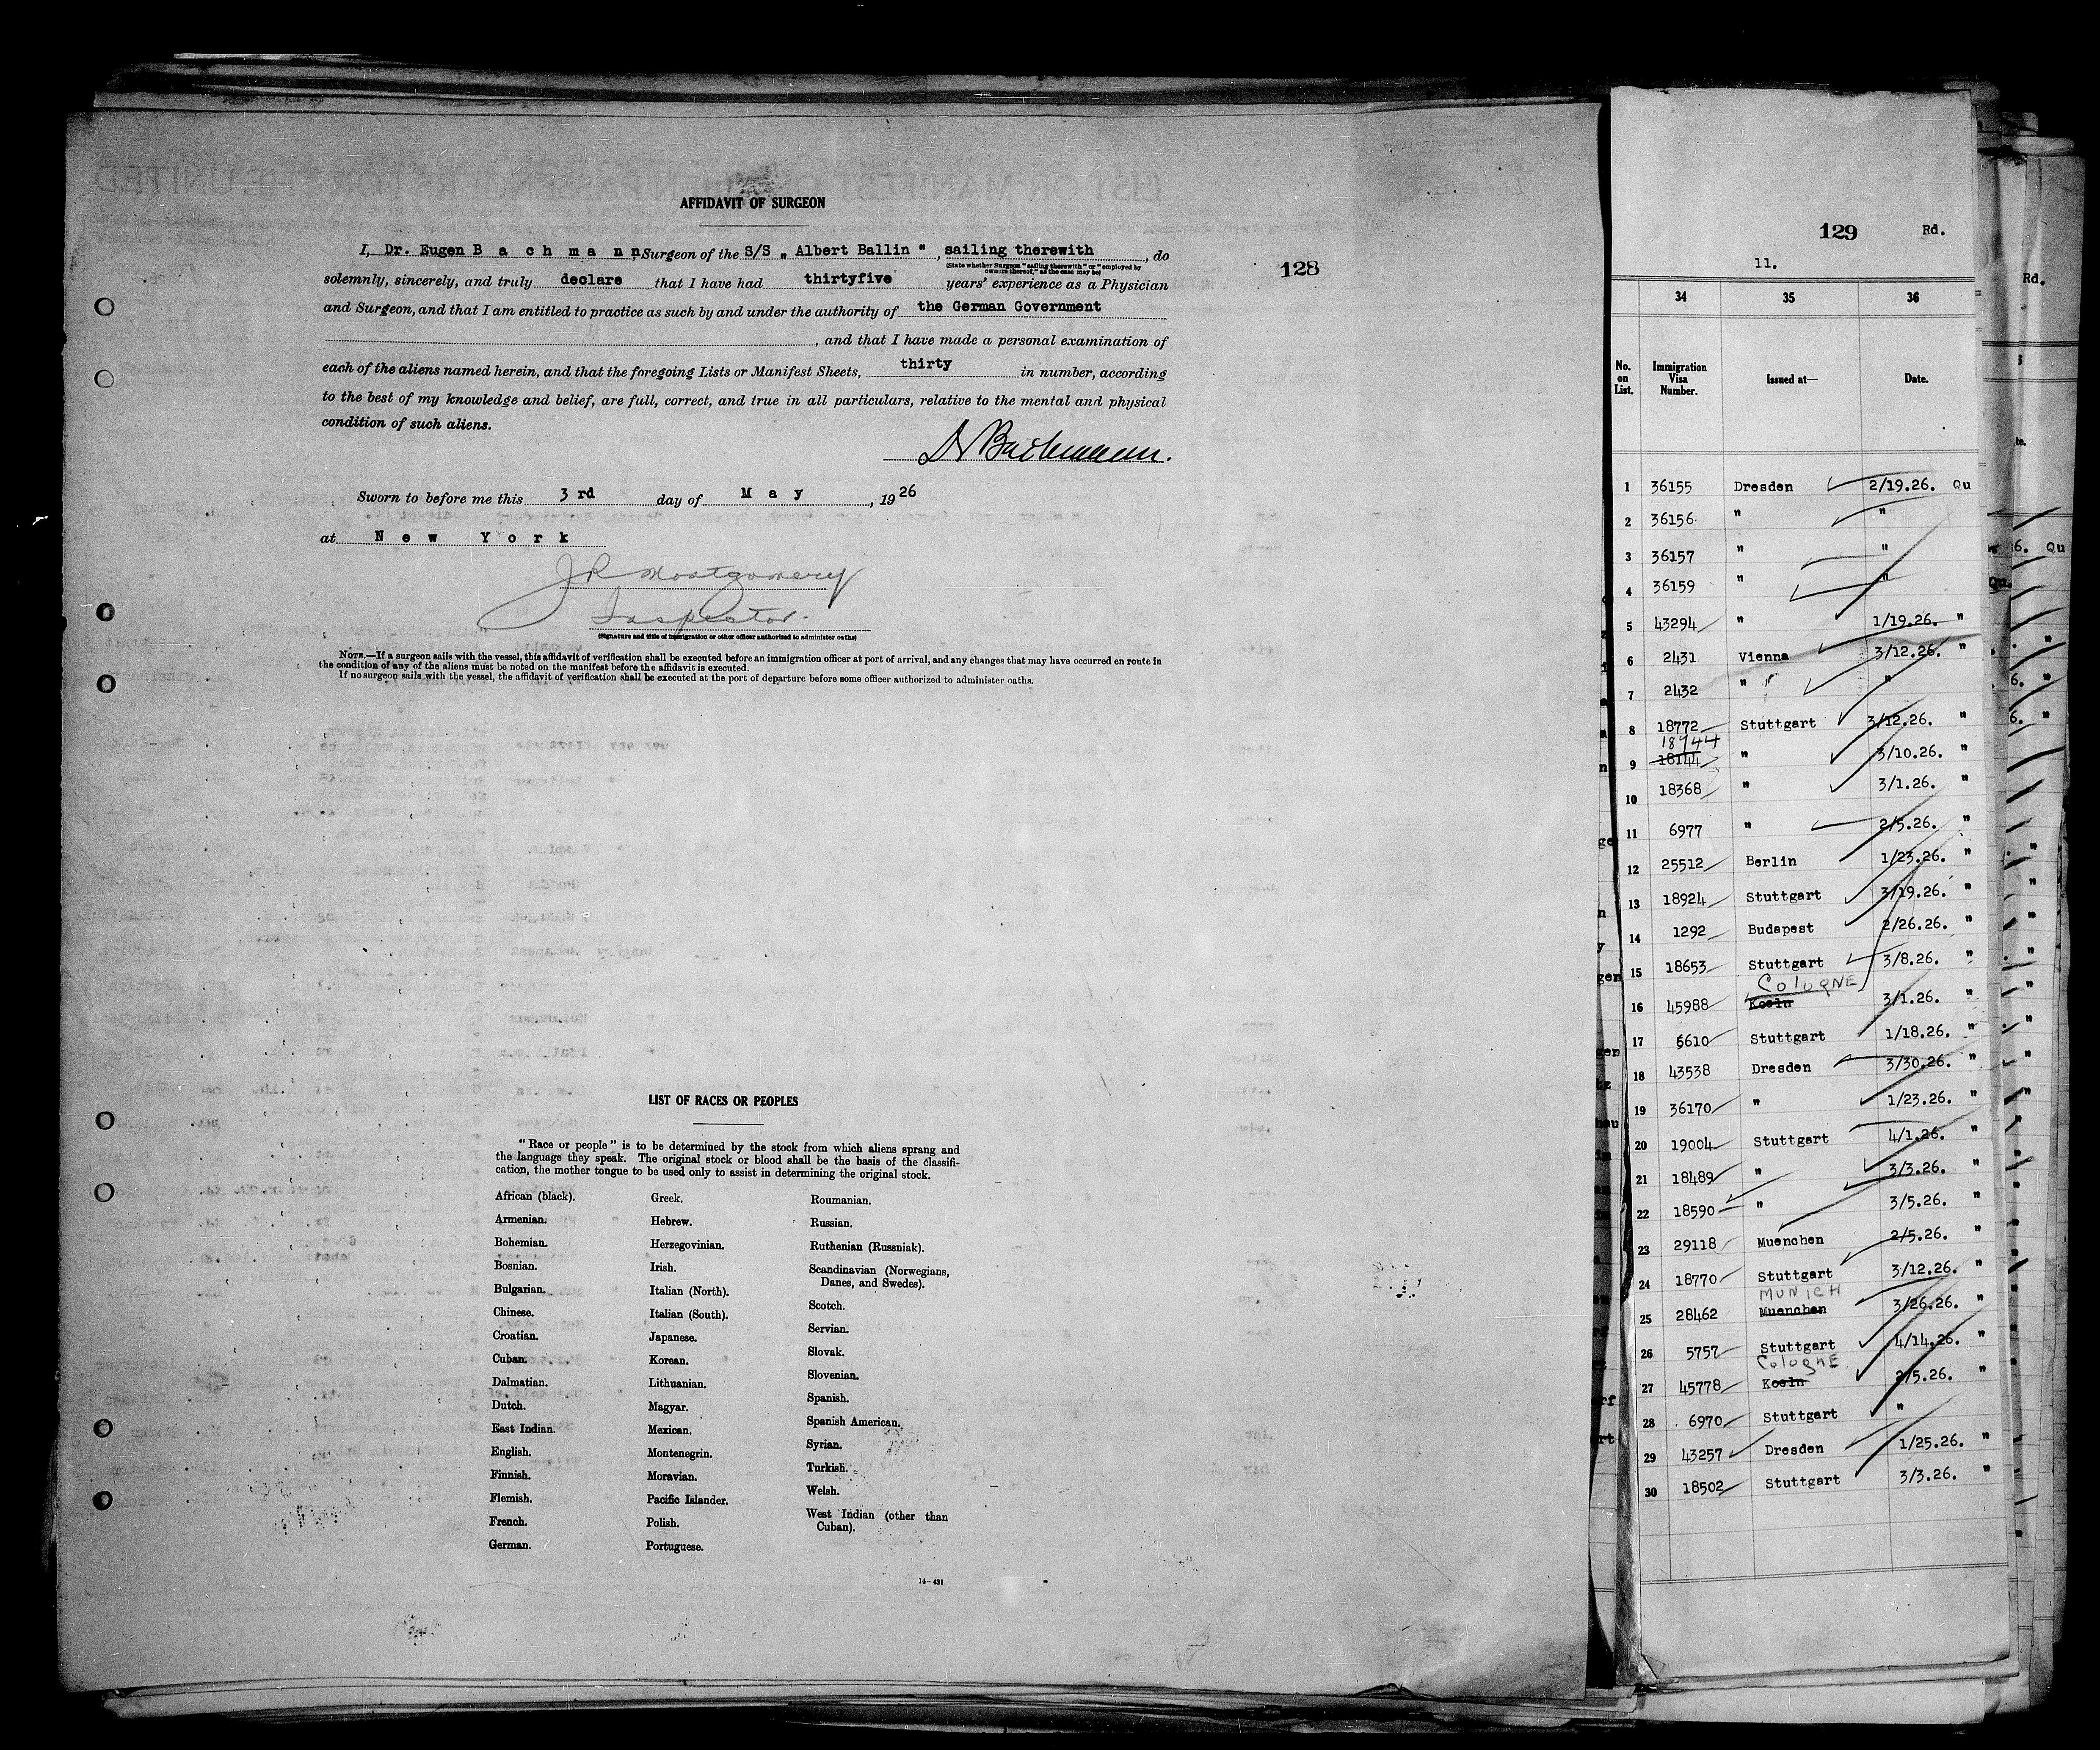 AFFIDAVIT OF SURGEON
I, Dr. Eugen B a c h m a n n, Surgeon of the S/S „ Albert Ballin ", sailing therewith, do
(State whether Surgeon "sailing therewith" or "employed by
owners thereof," as the case may be)
solemnly, sincerely, and truly declare that I have had thirtyfive years' experience as a Physician
and Surgeon, and that I am entitled to practice as such by and under the authority of the German Government
, and that I have made a personal examination of
each of the aliens named herein, and that the foregoing Lists or Manifest Sheets, thirty in number, according
to the best of my knowledge and belief, are full, correct, and true in all particulars, relative to the mental and physical
condition of such aliens.
Dr Bachmann.
Sworn to before me this 3rd day of M a y, 1926
at N e w Y o r k
J R Montgomery
Inspector.
(Signature and title of immigration or other officer authorized to administer oaths)
NOTE.—If a surgeon sails with the vessel, this affidavit of verification shall be executed before an immigration officer at port of arrival, and any changes that may have occurred en route in
the condition of any of the aliens must be noted on the manifest before the affidavit is executed.
If no surgeon sails with the vessel, the affidavit of verification shall be executed at the port of departure before some officer authorized to administer oaths.
128
LIST OF RACES OR PEOPLES
"Race or people" is to be determined by the stock from which aliens sprang and
the language they speak. The original stock or blood shall be the basis of the classifi-
cation, the mother tongue to be used only to assist in determining the original stock.
African (black).
Armenian.
Bohemian.
Bosnian.
Bulgarian.
Chinese.
Croatian.
Cuban.
Dalmatian.
Dutch.
East Indian.
English.
Finnish.
Flemish.
French.
German.
Greek.
Hebrew.
Herzegovinian.
Irish.
Italian (North).
Italian (South).
Japanese.
Korean.
Lithuanian.
Magyar.
Mexican.
Montenegrin.
Moravian.
Pacific Islander.
Polish.
Portuguese.
Roumanian.
Russian.
Ruthenian (Russniak).
Scandinavian (Norwegians,
Danes, and Swedes).
Scotch.
Servian.
Slovak.
Slovenian.
Spanish.
Spanish American.
Syrian.
Turkish.
Welsh.
West Indian (other than
Cuban).
14—431
129 Rd.
11.
34 35 36
No. on List. Immigration Visa Number. Issued at— Date.
1 36155 Dresden 2/19.26. Qu
2 36156 " "
3 36157 " "
4 36159 " "
5 43294 " 1/19.26. "
6 2431 Vienna 3/12.26. "
7 2432 " "
8 18772 Stuttgart 3/12.26. "
18944
9 18144 " 3/10.26. "
10 18368 " 3/1.26. "
11 6977 " 2/5.26. "
12 25512 Berlin 1/23.26. "
13 18924 Stuttgart 3/19.26. "
14 1292 Budapest 2/26.26. "
15 18653 Stuttgart 3/8.26. "
COLOGNE
16 45988 Koeln 3/1.26. "
17 6610 Stuttgart 1/18.26. "
18 43538 Dresden 3/30.26. "
19 36170 " 1/23.26. "
20 19004 Stuttgart 4/1.26. "
21 18489 " 3/3.26. "
22 18590 " 3/5.26. "
23 29118 Muenchen 2/5.26. "
24 18770 Stuttgart 3/12.26. "
MUNICH
25 28462 Muenchen 3/26.26. "
26 5757 Stuttgart 4/14.26. "
COLOGNE
27 45778 Koeln 2/5.26. "
28 6970 Stuttgart "
29 43257 Dresden 1/25.26. "
30 18502 Stuttgart 3/3.26. "
Rd.
6. Qu
Qu.